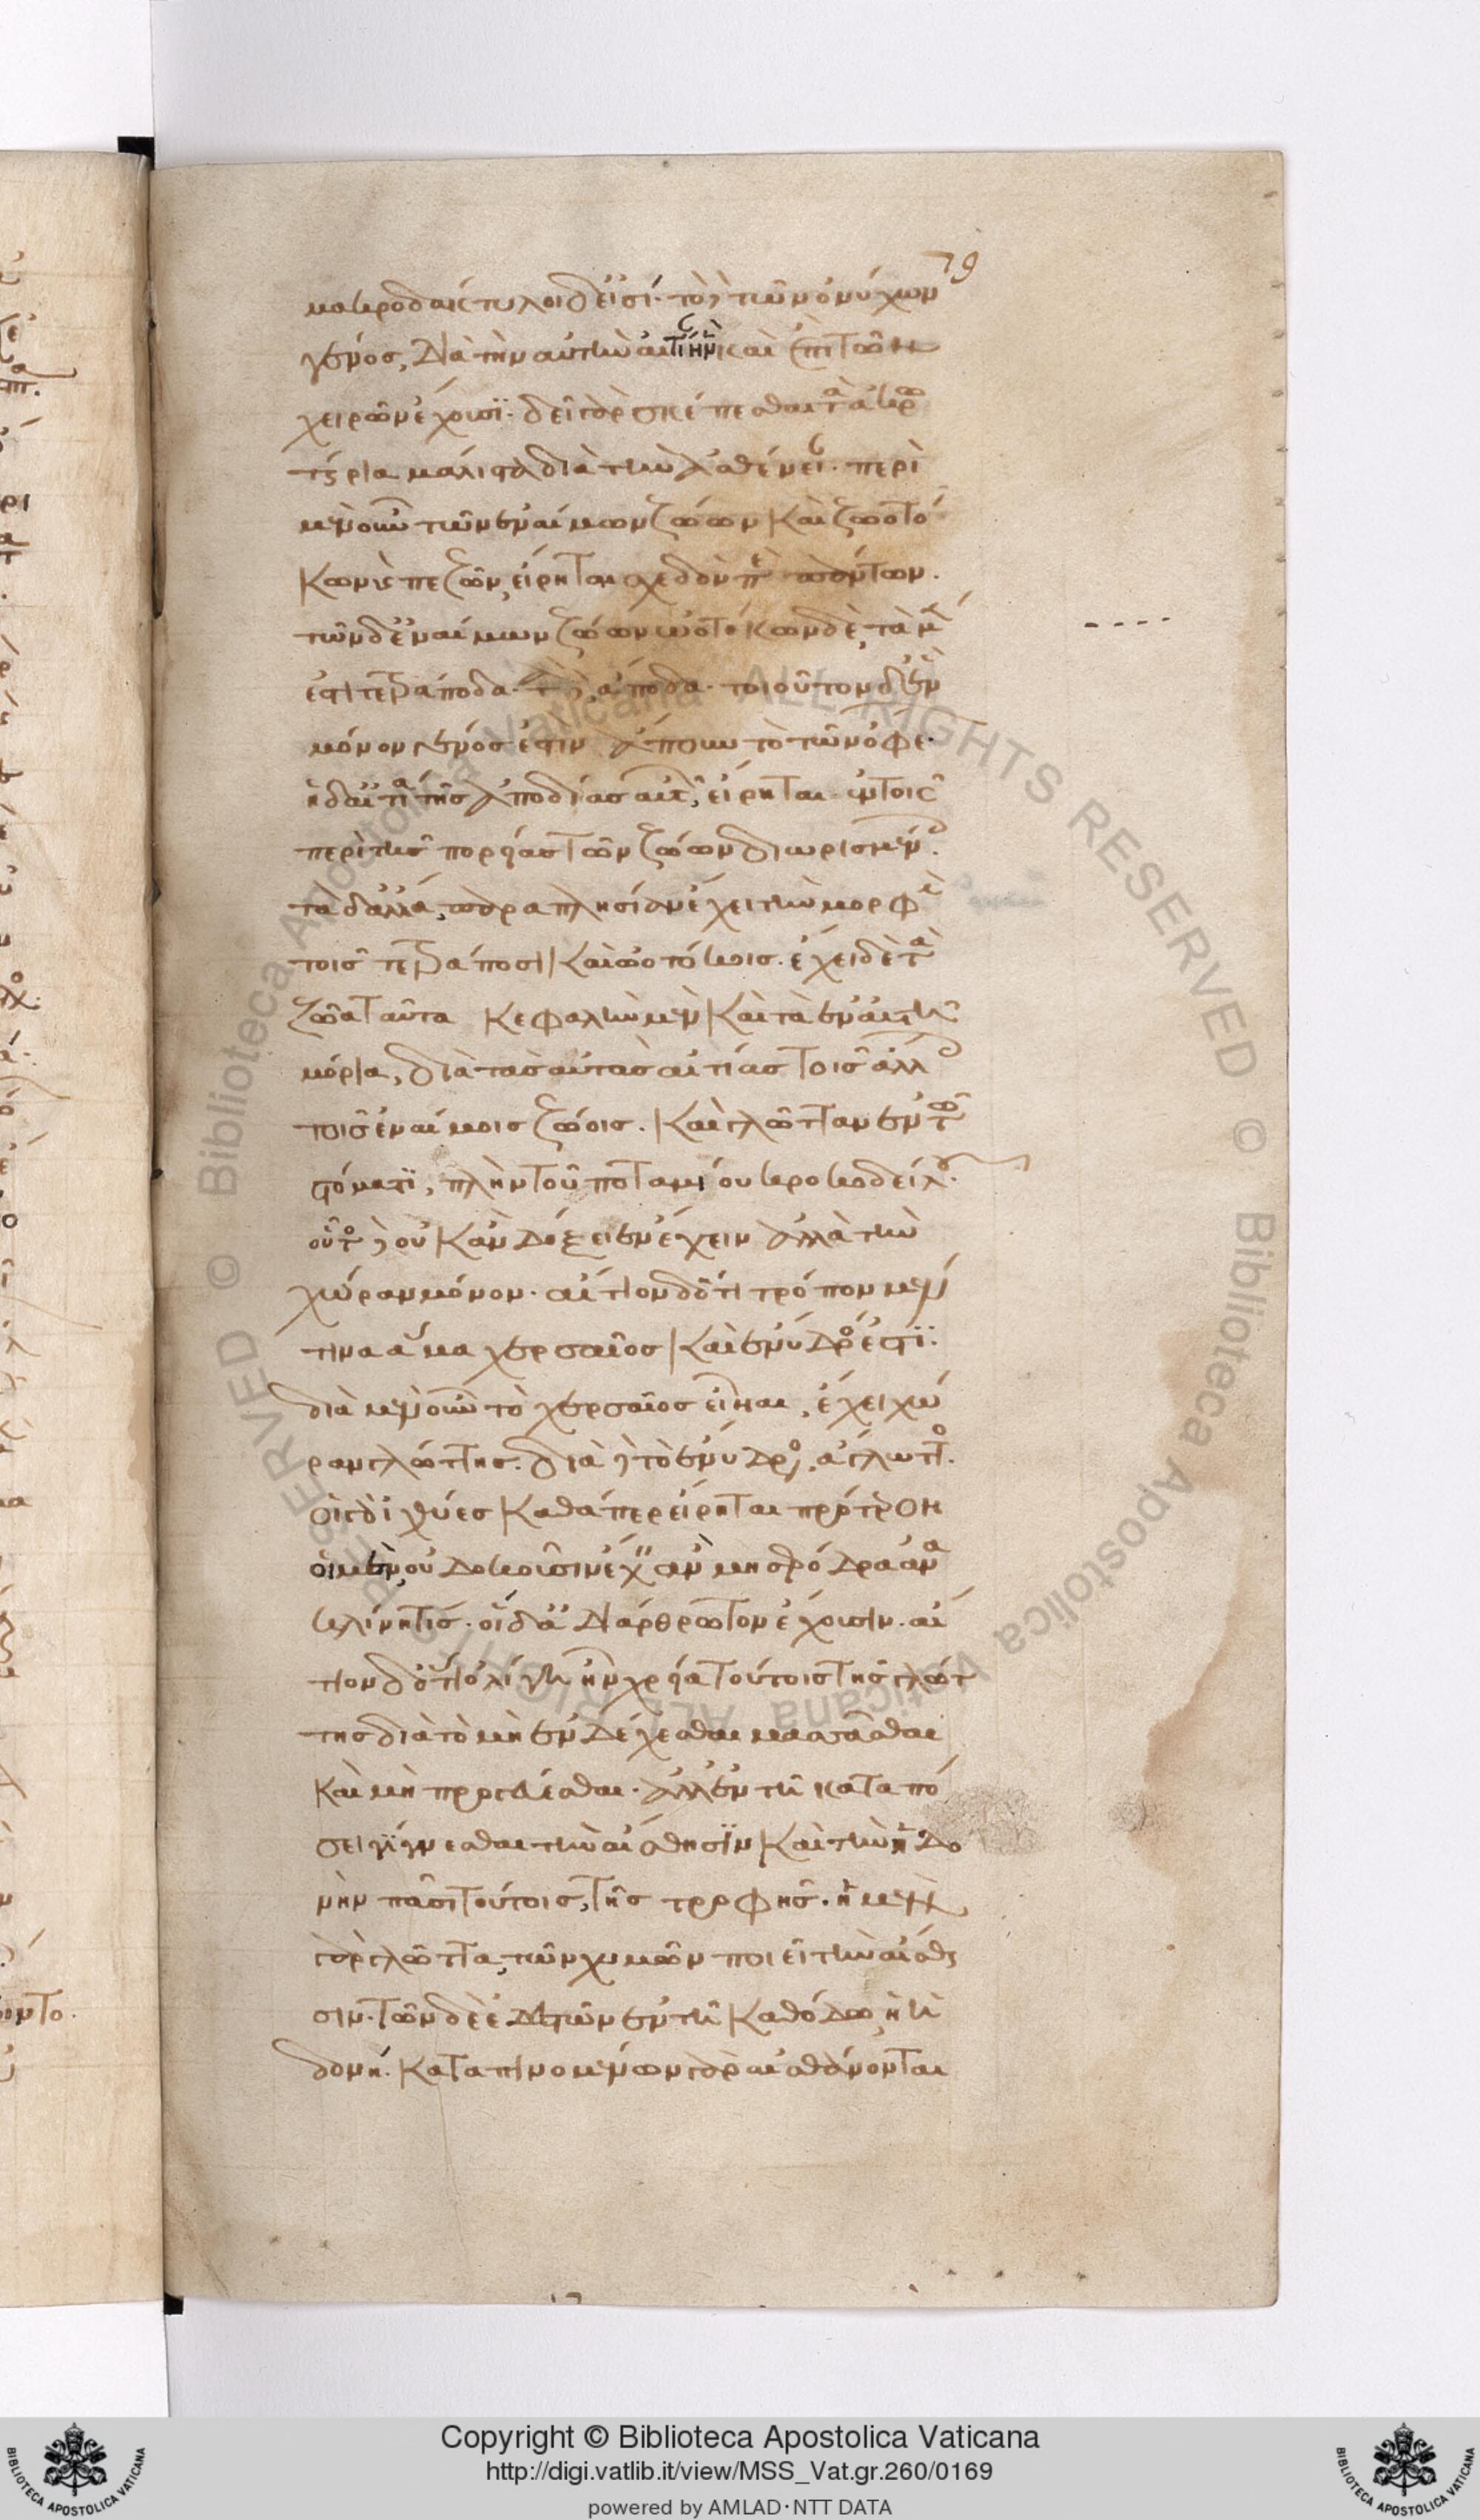 μακροδάκτυλοι δ' εἰσί. τὸ δὲ τῶν ὀνύχων
γένος, διὰ τὴν αὐτὴν αἰτίην καὶ ἐπὶ τῶν
χειρῶν ἔχουσϊ. δεῖ γὰρ σκέπεσθαι τὰ ἀκρω
τήρια μάλιστα διὰ τὴν ἀσθένει. περὶ
μὲν οὖν τῶν ἐναίμων ζώων καὶ ζωοτό
κων καὶ πεζῶν, εἴρηται σχεδὸν περὶ πάντων.
τῶν δ' ἐναίμων ζώων ὠοτόκων δὲ, τὰ μέν
ἐστι τετράποδα. τὰ δὲ, ἄποδα. τοιοῦτον δ' ἓν
μόνον γένος ἐστὶν ἄπουν τὸ τῶν ὄφε.
ἡ δ' αἰτία τῆς ἀποδίας αὐτ, εἴρηται ἐν τοῖς
περὶ τῆς πορείας τῶν ζώων διωρισμέν.
τὰ δ' ἄλλα, παραπλησίαν ἔχει τὴν μορφὴ
τοῖς τετράποσι καὶ ὠοτόκοις. ἔχει δὲ τὰ
ζῶα ταῦτα κεφαλὴν μὲν καὶ τὰ ἐν αὐτῆ
μόρια, διὰ τὰς αὐτὰς αἰτίας τοῖς ἄλλ
τοῖς ἐναίμοις ζώοις. καὶ γλῶτταν ἐν τῶ
στόματϊ, πλὴν τοῦ ποταμίου κροκοδείλου.
οὗτος δὲ οὐκ ἂν δόξειεν ἔχειν ἀλλὰ τὴν
χώραν μόνον. αἴτιον δ' ὅτι τρόπον μέν
τινα ἅμα χερσαῖος καὶ ἔνυδρός ἐστϊ.
διὰ μὲν οὖν τὸ χερσαῖος εἶναι, ἔχει χώ
ραν γλώττης. διὰ δὲ τὸ ἔνυδρος, ἄγλωττος.
οἱ γὰρ ἰχθύες καθάπερ εἴρηται πρότερον
οἱ μὲν, οὐ δοκοῦσιν ἔχειν ἂν μὴ σφόδρα ἀνα
κλίνῃ τις. οἱ δ' ἀδιάρθρωτον ἔχουσιν. αἴ
τιον δ' ὅτι ὀλίγη ἦν χρεία τούτοις τῆς γλώτ
της διὰ τὸ μὴ ἐνδέχεσθαι μασᾶσθαι
καὶ μὴ προγεύεσθαι. ἀλλ' ἐν τῆ καταπό
σει γΐγνεσθαι τὴν αἴσθησϊν καὶ τὴν ἡδο
νὴν πᾶσι τούτοις, τῆς τροφῆς. ἡ μὲν
γὰρ γλῶττα, τῶν χυμῶν ποιεῖ τὴν αἴσθη
σιν. τῶν δὲ ἐδεστῶν ἐν τῆ καθόδω, ἡ ἡ
δονή. καταπινομένων γὰρ αἰσθάνονται
Copyright © Biblioteca Apostolica Vaticana
http://digi.vatlib.it/view/MSS_Vat.gr.260/0169
powered by AMLAD·NTT DATA